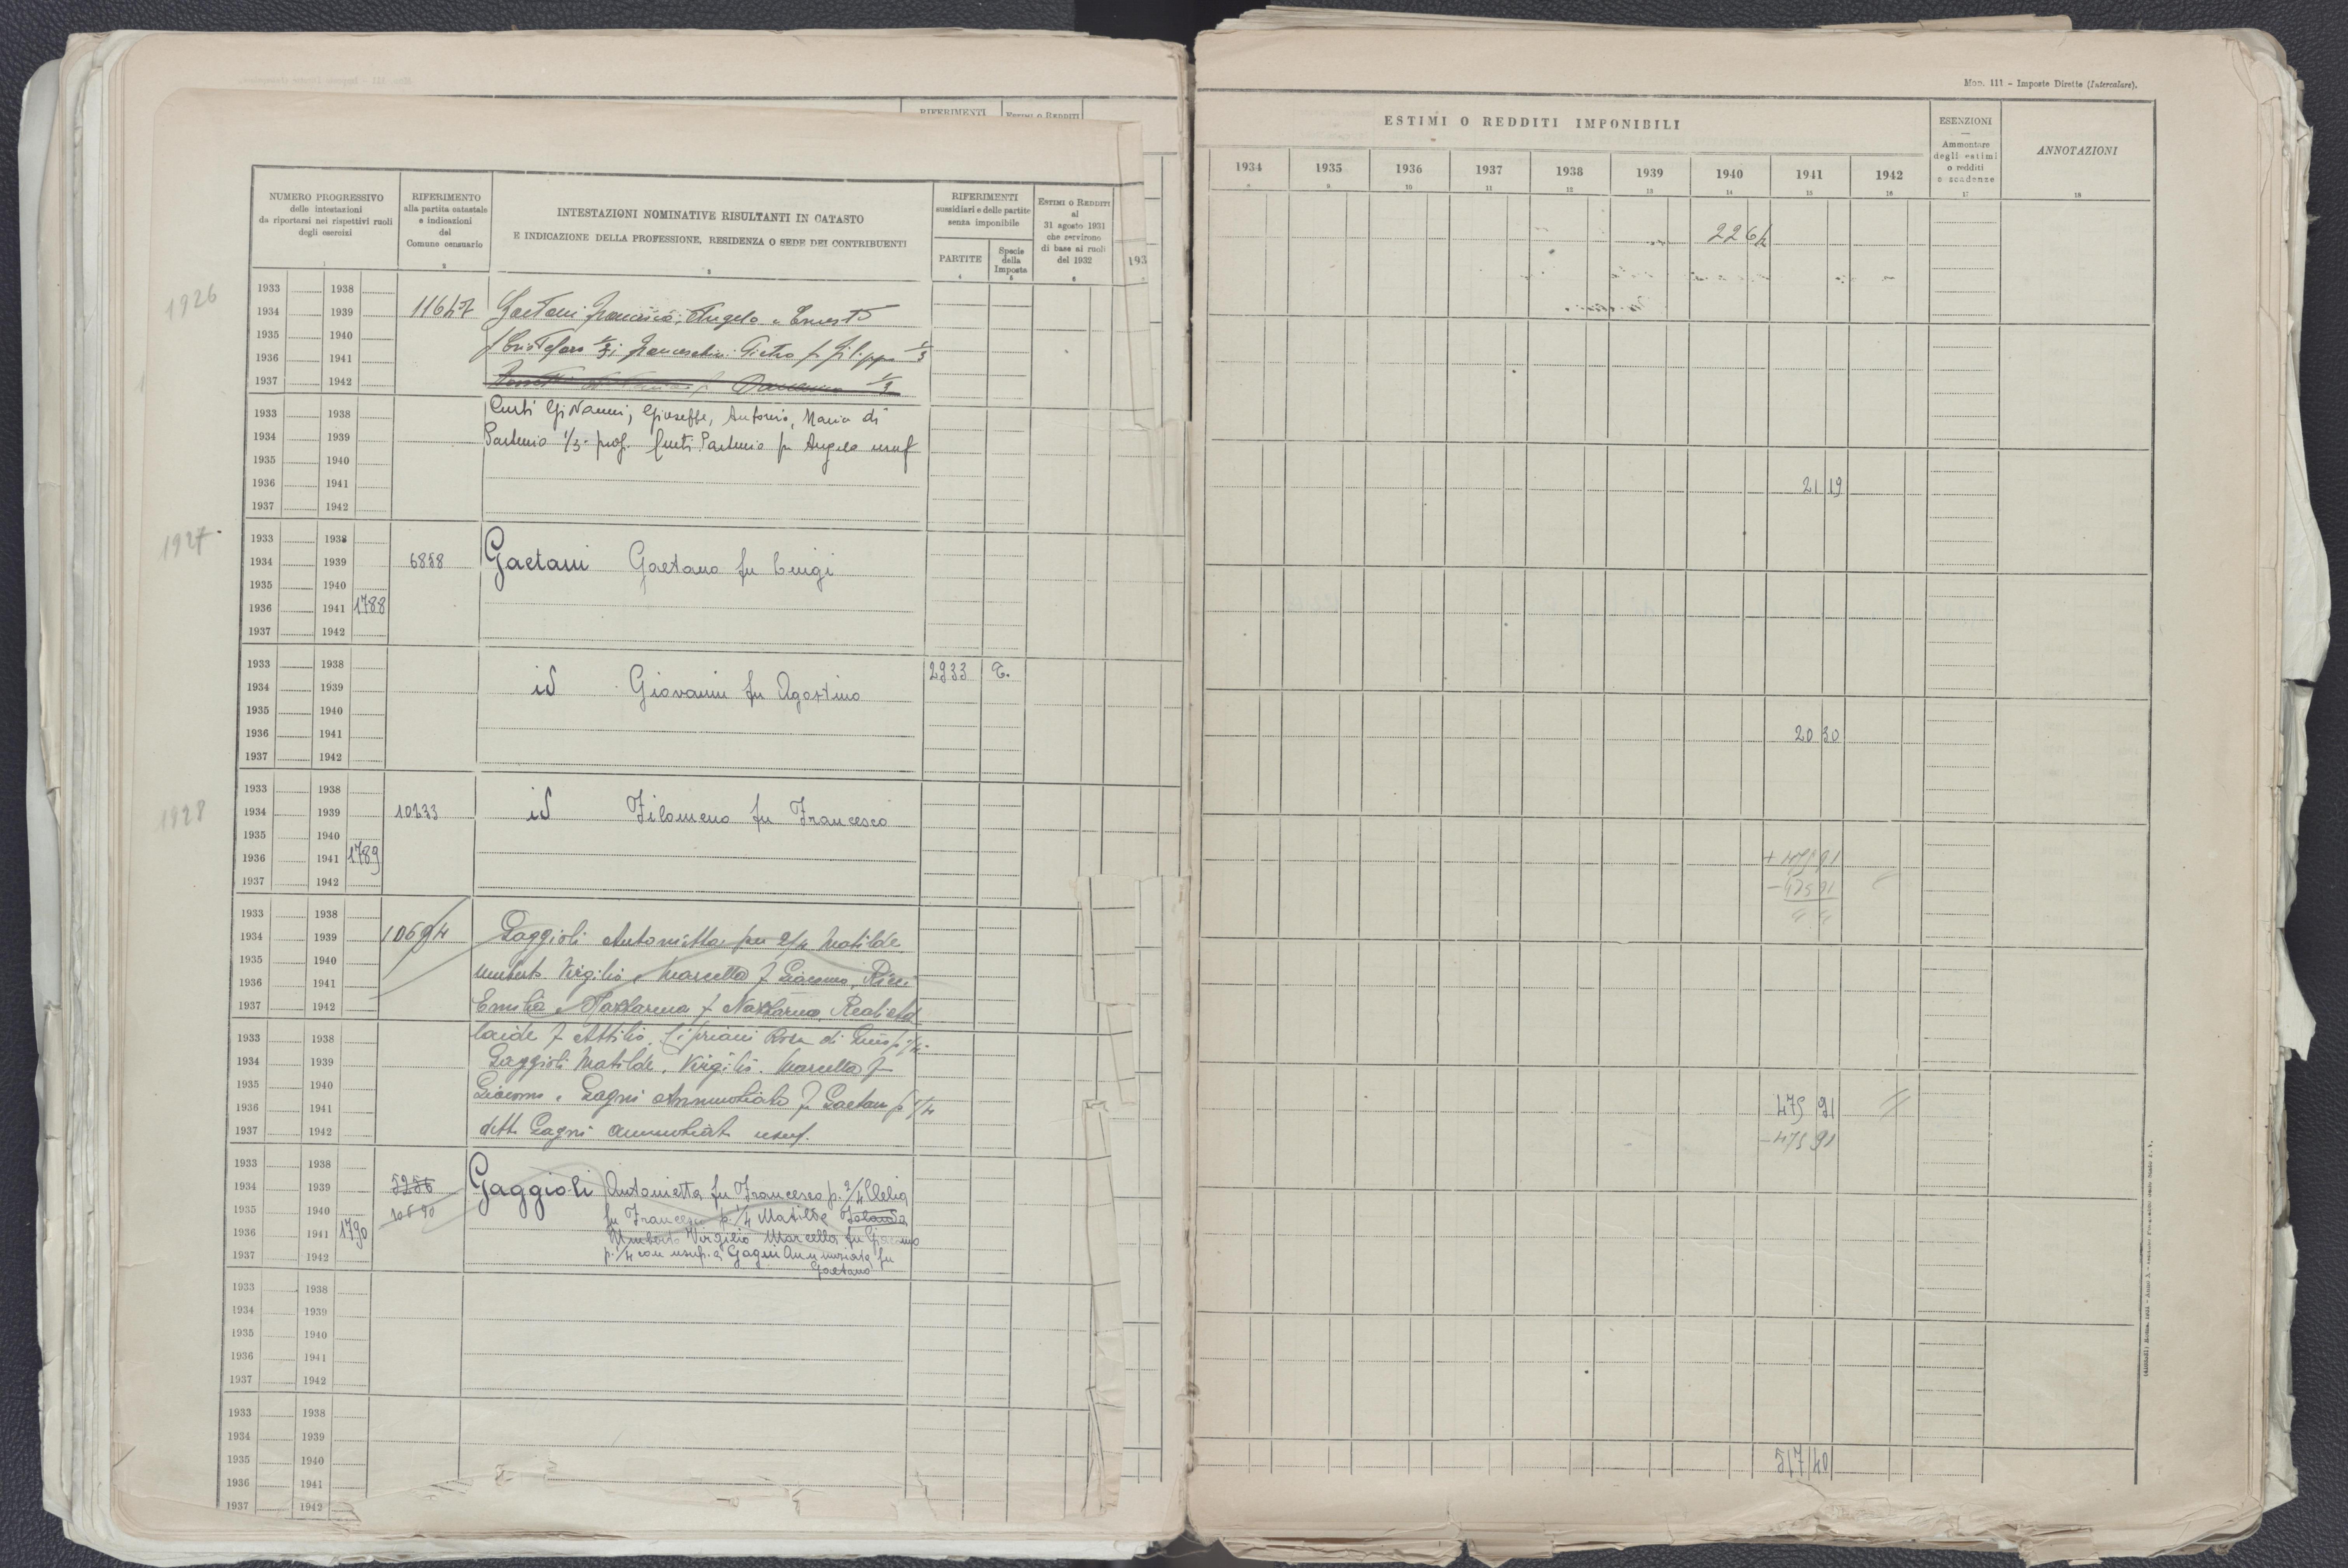 Mod. 111 – Imposte Dirette (Intercalare).
RIFERIMENTI
ESTIMI O REDDITI
NUMERO PROGRESSIVO
delle intestazioni
da riportarsi nei rispettivi ruoli
degli esercizi
1
RIFERIMENTO
alla partita catastale
e indicazioni
del
Comune censuario
2
INTESTAZIONI NOMINATIVE RISULTANTI IN CATASTO
E INDICAZIONE DELLA PROFESSIONE, RESIDENZA O SEDE DEI CONTRIBUENTI
3
RIFERIMENTI
sussidiari e delle partite
senza imponibile
PARTITE
4
Specie
della
Imposta
5
ESTIMI O REDDITI
al
31 agosto 1931
che servirono
di base ai ruoli
del 1932
6
193
1926
1933 1938
1934 1939
1935 1940
1936 1941
1937 1942
Gaetani Francesco, Angelo e Ernesto
f Cristofaro 1/3; Franceschini Pietro fu Filippo 1/3
1933 1938
1934 1939
1935 1940
1936 1941
1937 1942
Curti Giovanni, Giuseppe, Antonio, Maria di
Partenio 1/3 prop. Curti Partenio fu Angelo usuf
1927
1933 1938
1934 1939
1935 1940
1936 1941 1788
1937 1942
6858
Gaetani Gaetano fu Luigi
1933 1938
1934 1939
1935 1940
1936 1941
1937 1942
id Giovanni fu Agostino
2933 T.
1928
1933 1938
1934 1939
1935 1940
1936 1941 1789
1937 1942
10233
id Filomeno fu Francesco
1933 1938
1934 1939
1935 1940
1936 1941
1937 1942
10694
Gaggioli Antonietta per 2/4 Matilde
Umberto Virgilio e Marcella f Giacomo, Ricci
Emilia e Nazzarena f Nazzareno, Reali Ade
1933 1938
1934 1939
1935 1940
1936 1941
1937 1942
laide f Attilio, Cipriani Rosa di
Gaggioli Matilde, Virgilio, Marcella f
Giacomo e Gagni Annunziata f Gaetano p 1/4
detta Gagni Annunziata usuf.
1933 1938
1934 1939
1935 1940
1936 1941 1790
1937 1942
5256
10690
Gaggioli Antonietta fu Francesco p. 2/4 Clelia
fu Francesco p. 1/4 Matilde Iolanda
Umberto Virgilio Marcella fu Giacomo
p. 1/4 con usuf. a Gagni Annunziata fu
Gaetano
1933 1938
1934 1939
1935 1940
1936 1941
1937 1942
1933 1938
1934 1939
1935 1940
1936 1941
1937 1942
ESTIMI O REDDITI IMPONIBILI
1934 1935 1936 1937 1938 1939 1940 1941 1942
8 9 10 11 12 13 14 15 16
ESENZIONI
—
Ammontare
degli estimi
o redditi
e scadenze
17
ANNOTAZIONI
18
21 19
20 30
475 91
- 475 91
517 40